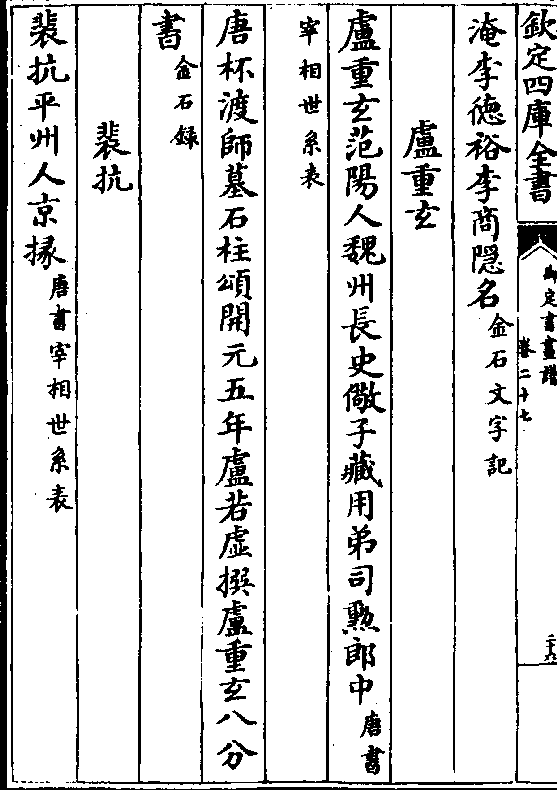 欽定四庫全書
御定書畫譜
卷二十七
二十六
淹李德裕李商隱名金石文字記
盧重玄
盧重玄范陽人魏州長史儆子藏用弟司勲郎中唐書
宰相世系表
唐杯渡師墓石柱頌開元五年盧若虛撰盧重玄八分
書金石録
裴抗
裴抗平州人京掾唐書宰相世系表